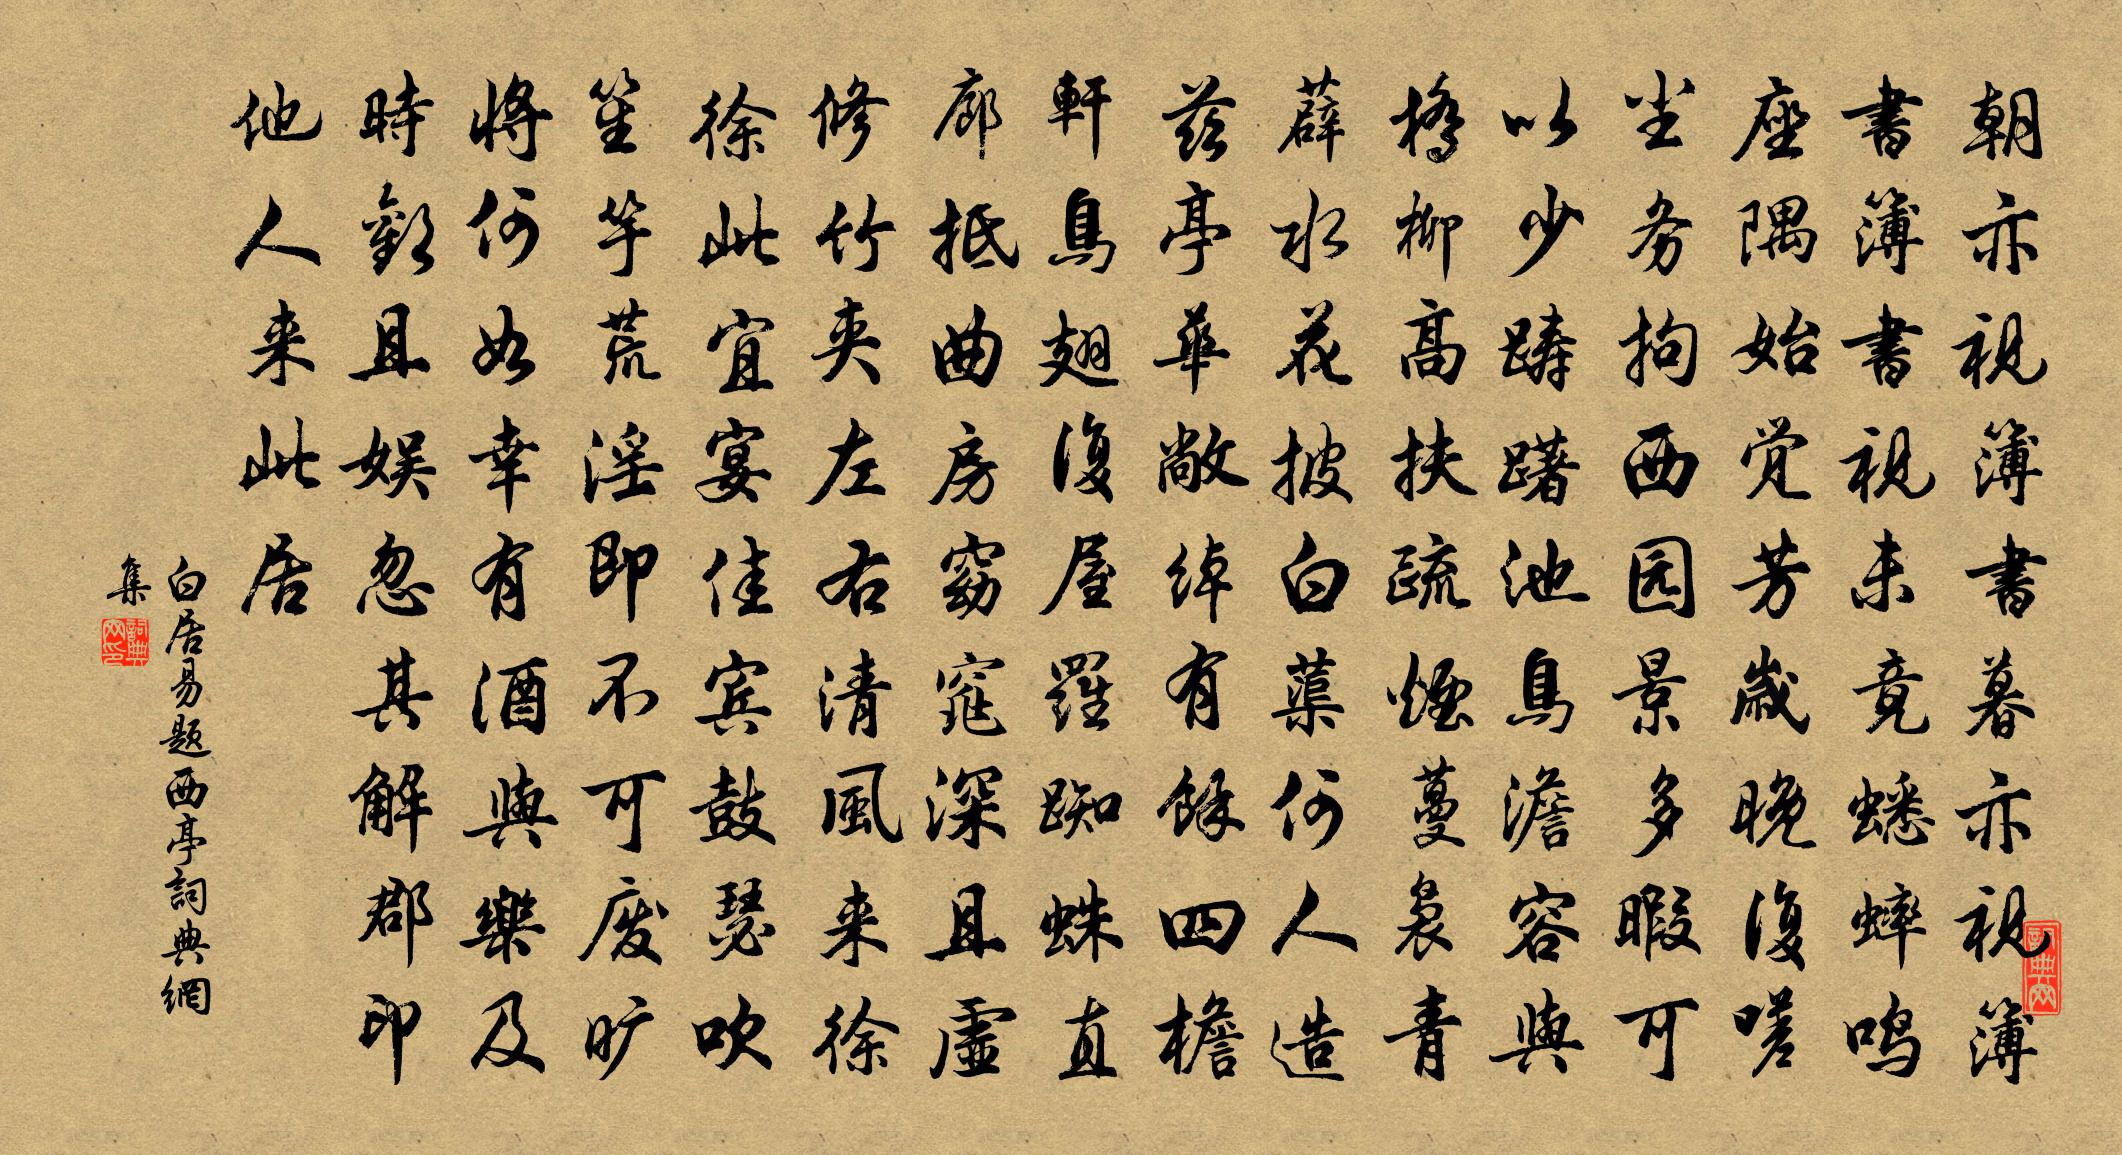 朝亦视簿书暮亦视簿
書簿書視未竟蟋蟀鸣
座隅始觉芳歲晚復嗟
尘务拘西园景多暇可
以少踌躇池鳥澹容與
橋柳高扶疏煙蔓裊青
薜水花披白蕖何人造
茲亭華敞綽有餘四檐
軒鳥翅復屋羅蜘蛛直
廊抵曲房窈窕深且虛
修竹夾左右清風来徐
徐此宜宴佳宾鼓瑟吹
笙竽荒淫即不可废旷
将何如幸有酒與樂及
時歡且娱忽其解郡印
他人来此居
白居易题西亭詞典網
集
詞典网